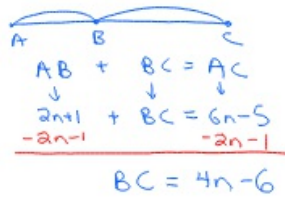 A B C
AB + BC = AC
2n+1 + BC = 6n-5
-2n-1 -2n-1
BC = 4n-6